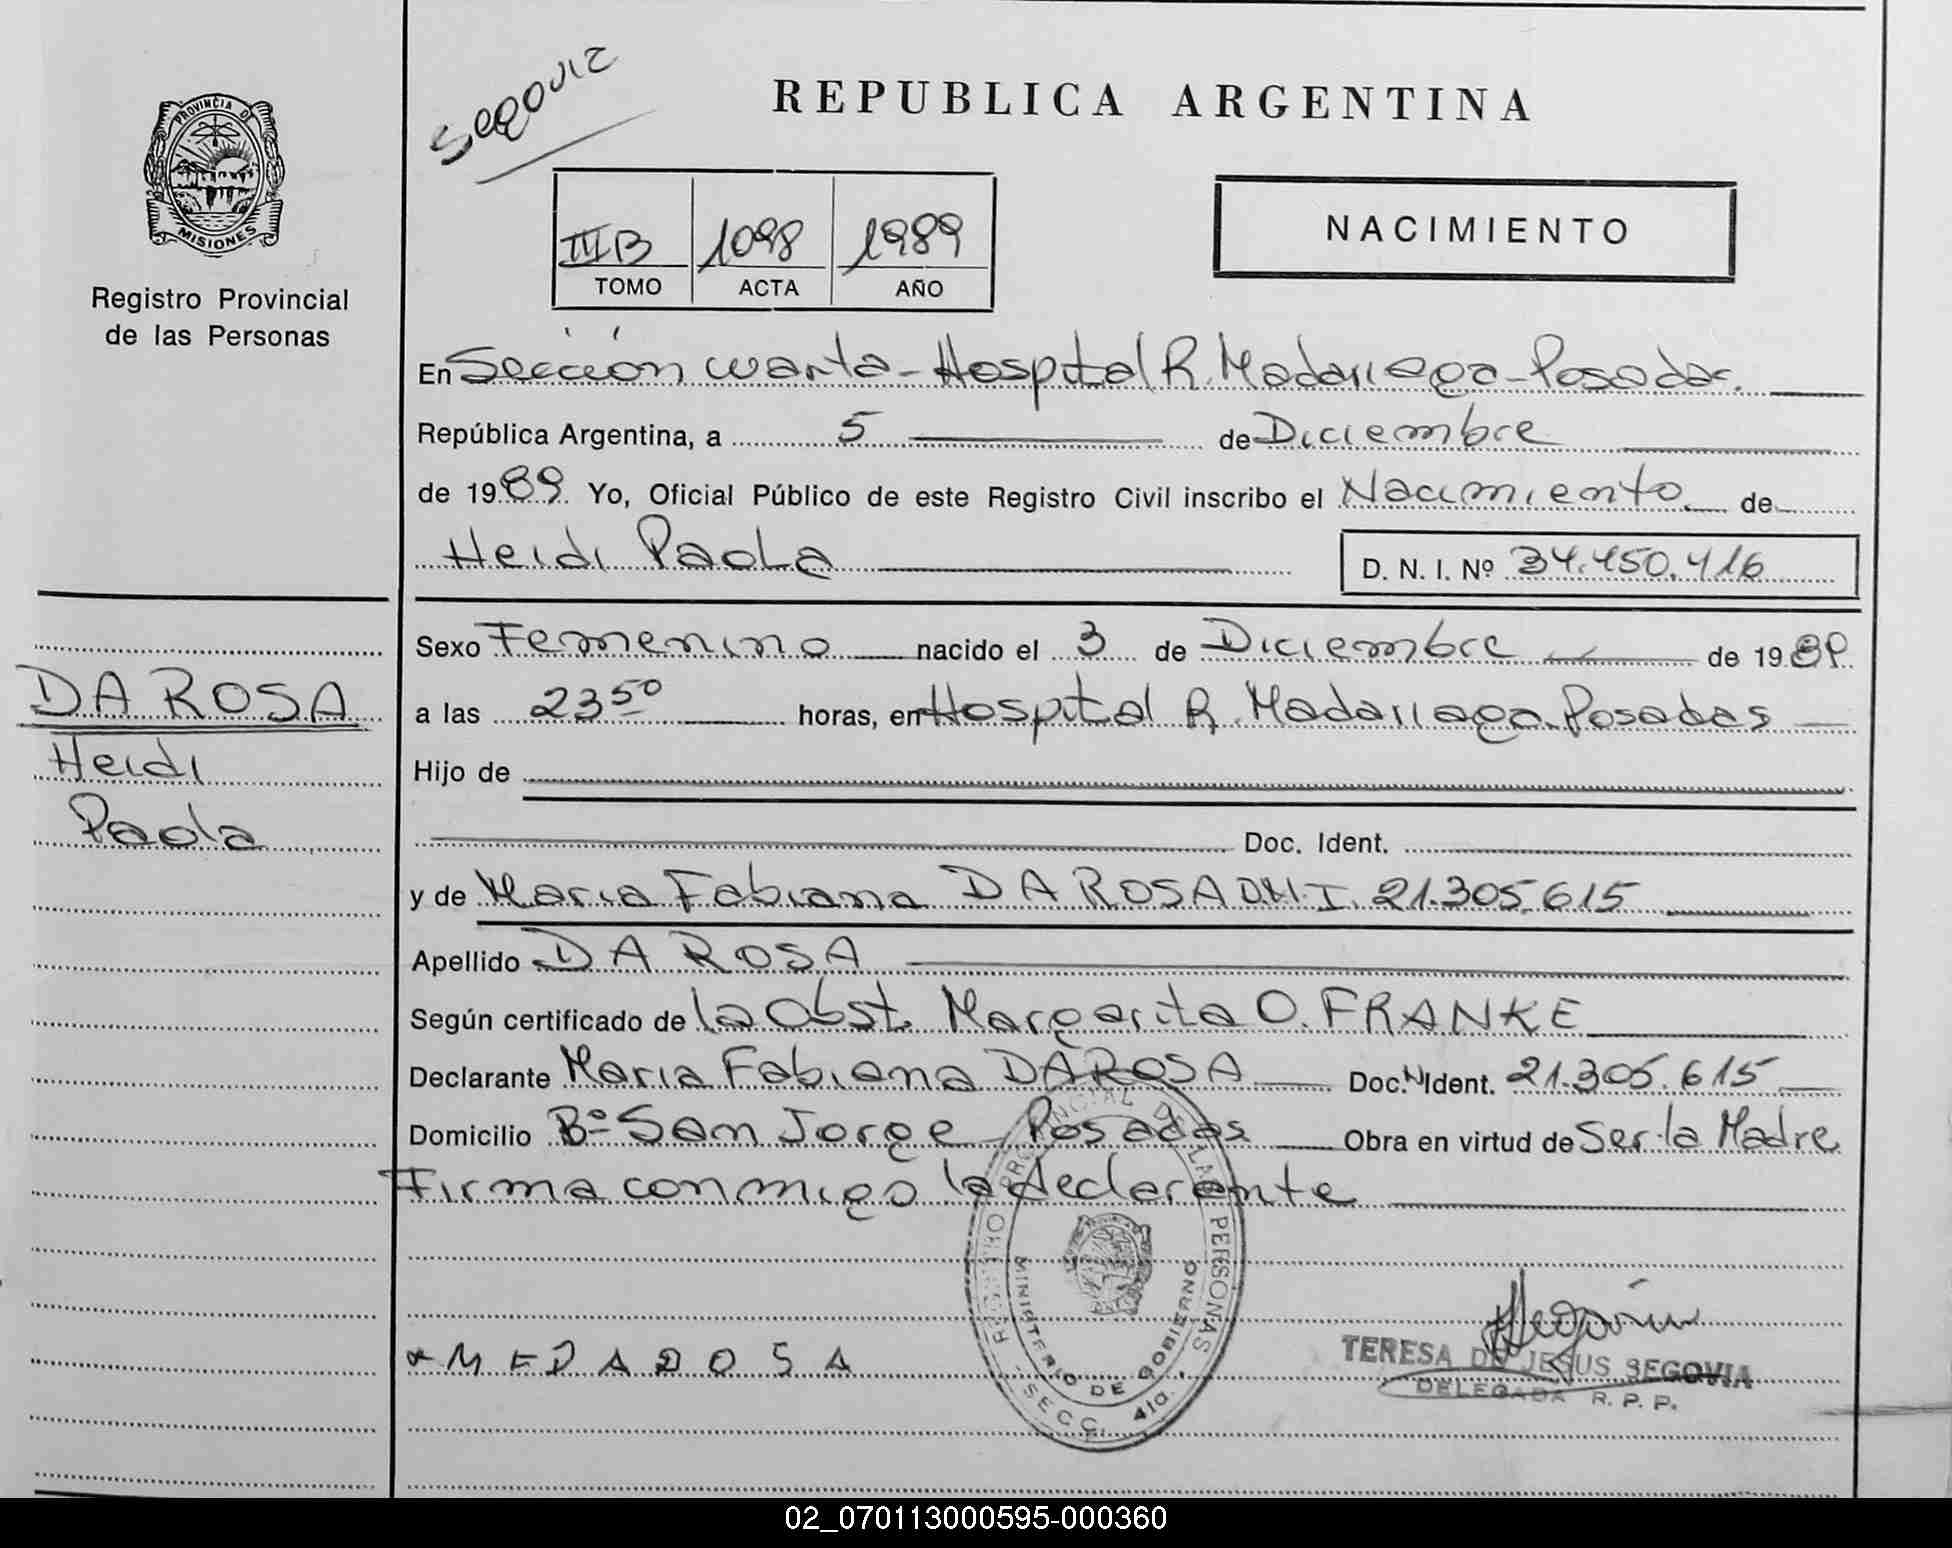 Segovia
REPUBLICA ARGENTINA
PROVINCIA DE
MISIONES
Registro Provincial
de las Personas
IIIB 1098 1989
TOMO ACTA AÑO
NACIMIENTO
En Sección cuarta - Hospital R. Madariaga - Posadas.
República Argentina, a 5 de Diciembre
de 1989. Yo, Oficial Público de este Registro Civil inscribo el Nacimiento de
Heidi Paola D. N. I. Nº 34.450.416
Sexo Femenino nacido el 3 de Diciembre de 1989
DA ROSA
Heidi
Paola
a las 23 50 horas, en Hospital R. Madariaga - Posadas
Hijo de
Doc. Ident.
y de Maria Fabiana DA ROSA D.N.I. 21.305.615
Apellido DA ROSA
Según certificado de la Obst. Margarita O. FRANKE
Declarante Maria Fabiana DA ROSA Doc. Ident. 21.305.615
Domicilio Bº San Jorge Posadas Obra en virtud de Ser la Madre
Firma conmigo la declarante
REGISTRO PROVINCIAL DE LAS PERSONAS
MINISTERIO DE GOBIERNO
SECC. 4ta.
TERESA DE JESUS SEGOVIA
DELEGADA R. P. P.
02_070113000595-000360